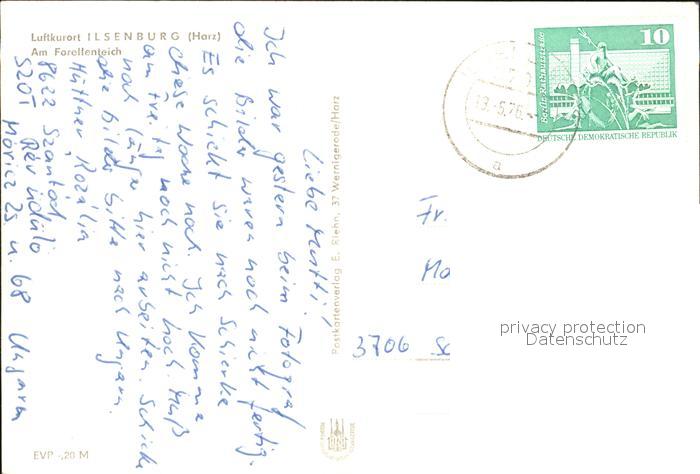 Luftkurort ILSENBURG (Harz)
Am Forellenteich
Liebe Mutti!
Ich war gestern beim Fotograf
die Bilder waren noch nicht fertig.
Es schickt sie nach Schierke
diese Woche noch. Ich komme
am Freitg noch nicht hoch. Muß
noch länger hier arbeiten. Schicke
die Bilder bitte nach Ungarn.
Hüttner Rozália
8622 Szántód
Rév üdülő
SZOT
Móricz Zs u. 68 Ungarn
Postkartenverlag E. Riehn, 37 Wernigerode/Harz
EVP -,20 M
10
Berlin, Rathausstraße
DEUTSCHE DEMOKRATISCHE REPUBLIK
-5.76.-
a
Fr.
Mo
3706 Sc
privacy protection
Datenschutz